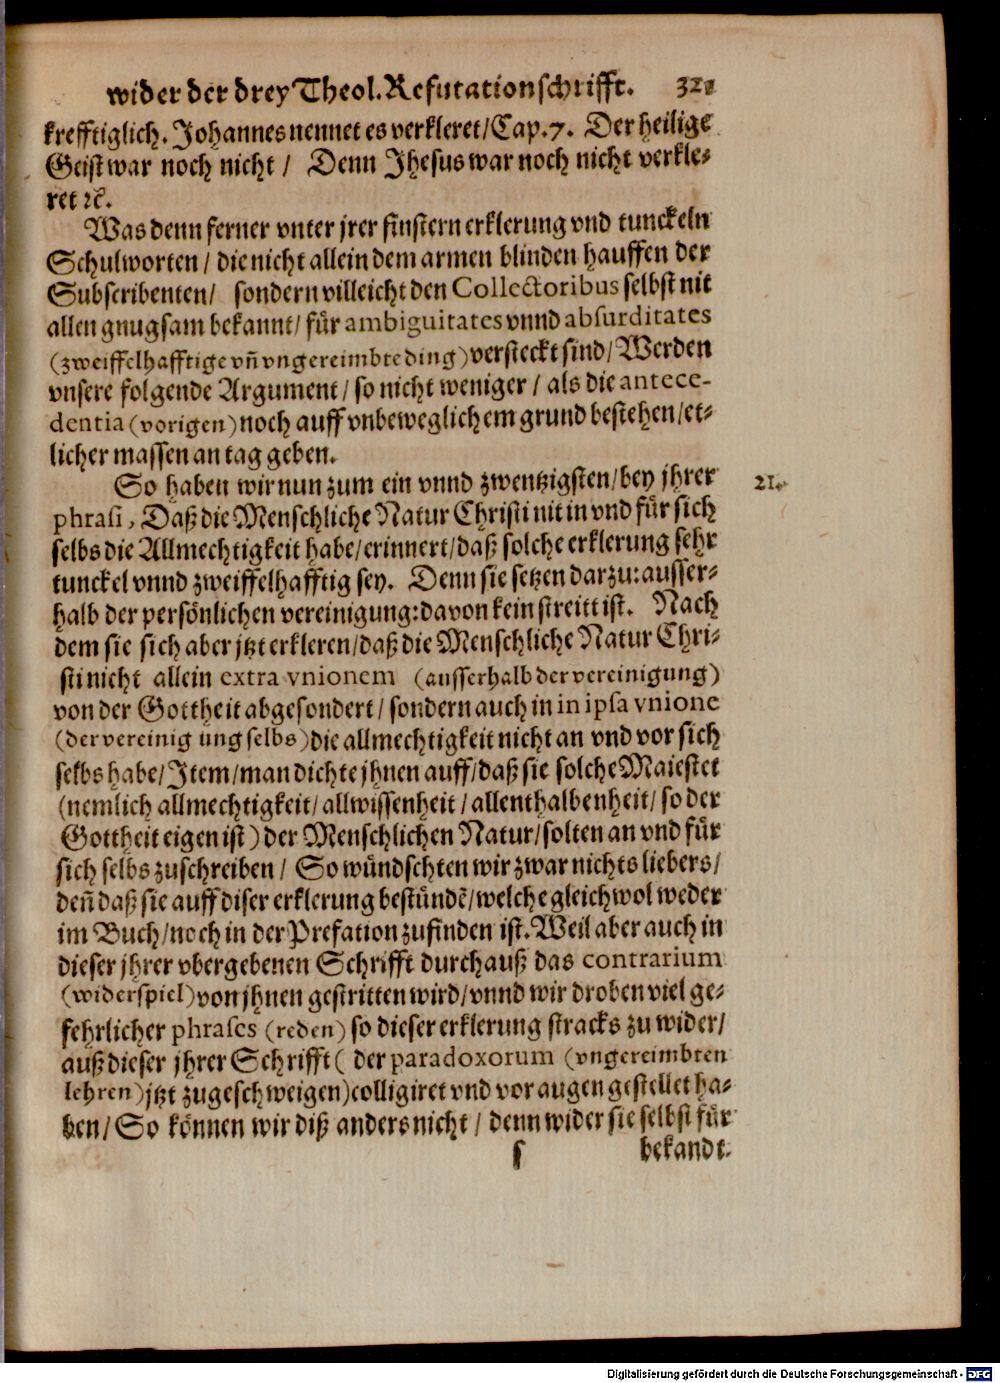 wider der drey Theol. Refutationschrifft. 321
krefftiglich. Johannes nennet es verkleret/Cap.7. Der heilige
Geist war noch nicht / Denn Jhesus war noch nicht verkle-
ret ꝛc.
Was denn ferner vnter jrer finstern erklerung vnd tunckeln
Schulworten / die nicht allein dem armen blinden hauffen der
Subscribenten/ sondern villeicht den Collectoribus selbst nit
allen gnugsam bekannt/ für ambiguitates vnnd absurditates
(zweiffelhafftige vñ vngereimbte ding) versteckt sind/ Werden
vnsere folgende Argument/ so nicht weniger / als die antece-
dentia (vorigen) noch auff vnbeweglichem grund bestehen/et-
licher massen an tag geben.
So haben wir nun zum ein vnnd zwentzigsten/bey jhrer
21.
phrasi, Daß die Menschliche Natur Christi nit in vnd für sich
selbs die Allmechtigkeit habe/erinnert/daß solche erklerung sehr
tunckel vnnd zweiffelhafftig sey. Denn sie setzen darzu: ausser-
halb der persönlichen vereinigung: davon kein streitt ist. Nach
dem sie sich aber jtzt erkleren/daß die Menschliche Natur Chri-
sti nicht allein extra vnionem (ausserhalb der vereinigung)
von der Gottheit abgesondert/ sondern auch in in ipsa vnione
(der vereinig ung selbs) die allmechtigkeit nicht an vnd vor sich
selbs habe/ Item/man dichte jhnen auff/daß sie solche Maiestet
(nemlich allmechtigkeit/ allwissenheit / allenthalbenheit/ so der
Gottheit eigen ist) der Menschlichen Natur/solten an vnd für
sich selbs zuschreiben / So wündschten wir zwar nichts liebers/
deñ daß sie auff diser erklerung bestündẽ/welche gleichwol weder
im Buch/noch in der Prefation zufinden ist. Weil aber auch in
dieser jhrer vbergebenen Schrifft durchauß das contrarium
(widerspiel) von jhnen gestritten wird/vnnd wir droben viel ge-
fehrlicher phrases (reden) so dieser erklerung stracks zu wider/
auß dieser jhrer Schrifft ( der paradoxorum (vngereimbten
lehren) jtzt zugeschweigen) colligiret vnd vor augen gestellet ha-
ben/ So können wir diß anders nicht / denn wider sie selbst für
s bekandt.
Digitalisierung gefördert durch die Deutsche Forschungsgemeinschaft - DFG